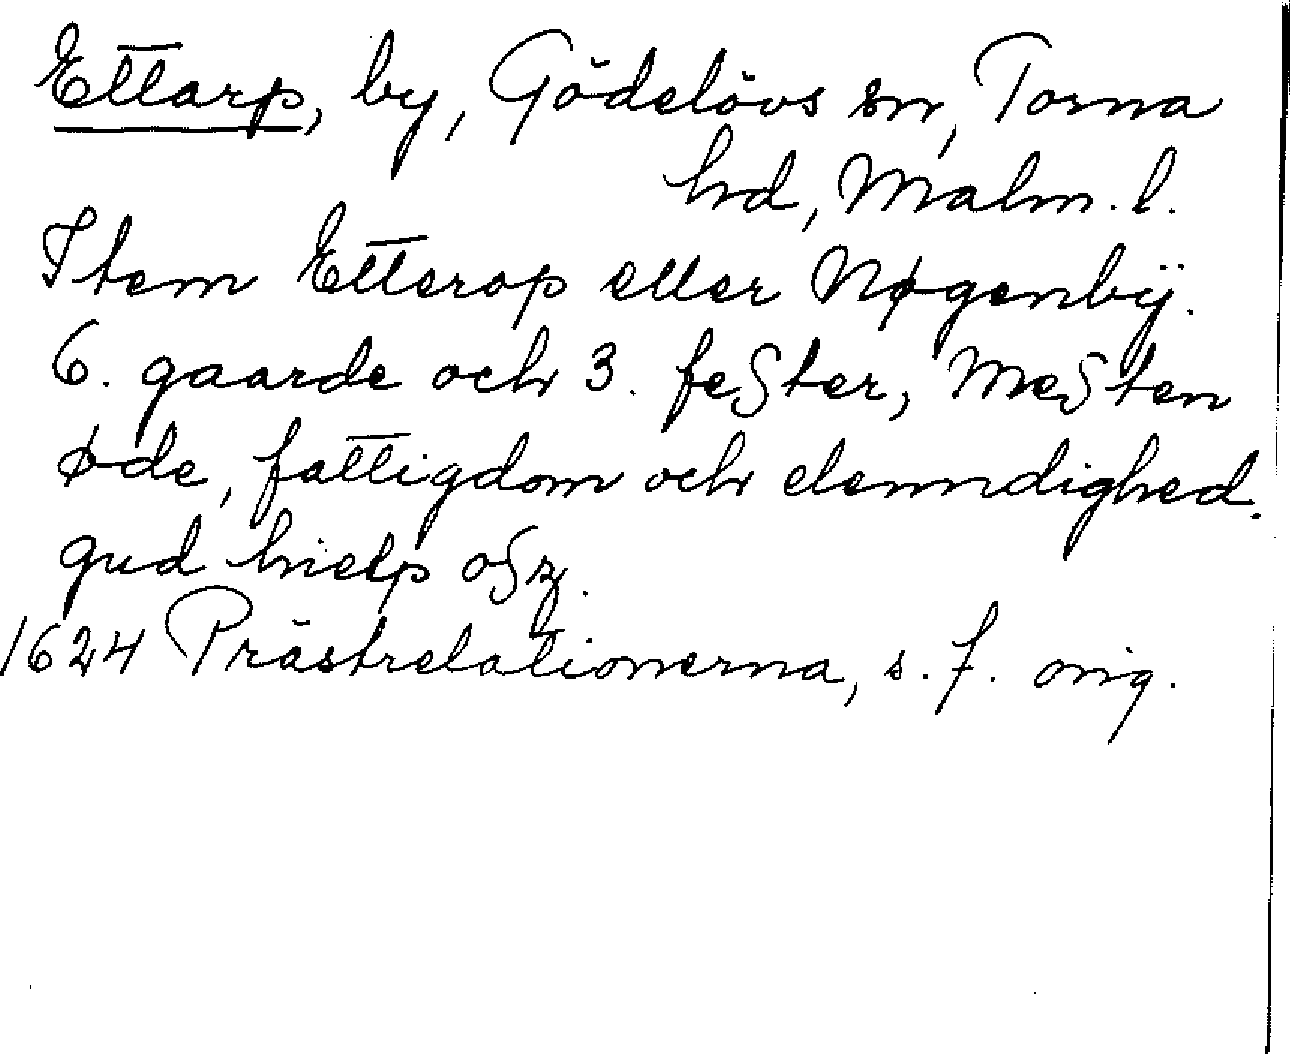 Ettarp, by, Gödelövs sn, Torna
hd, Malm. l.
Item Etterop eller Nøgenbÿ.
6. gaarde och 3. fester, Mesten
øde, fattigdom och elenndighed.
gud hielp osz.
1624 Prästrelationerna, s. 7. orig.